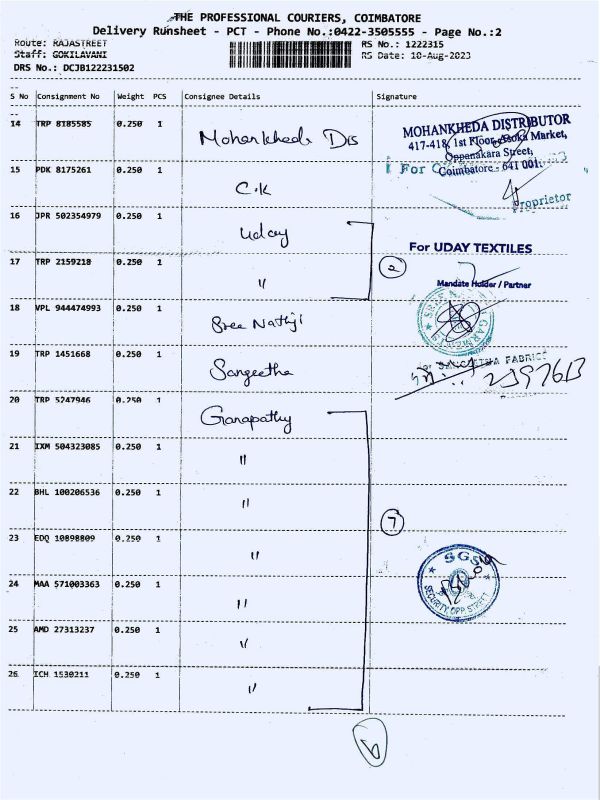 THE PROFESSIONAL COURIERS, COIMBATORE
Delivery Runsheet - PCT - Phone No.:0422-3505555 - Page No.:2
Route: RAJASTREET
Staff: GOKILAVANI
DRS No.: DCJB122231502
RS No.: 1222315
RS Date: 10-Aug-2023
S No Consignment No Weight PCS Consignee Details Signature
14 TRP 8185585 0.250 1 Mohankheda Dis
MOHANKHEDA DISTRIBUTOR
417-418, 1st Floor, Asoka Market,
Oppanakara Street,
Coimbatore - 641 001.
15 PDK 8175261 0.250 1 C.K
For
Proprietor
16 JPR 502354979 0.250 1 Uday
For UDAY TEXTILES
17 TRP 2159218 0.250 1 "
2
Mandate Holder / Partner
18 VPL 944474993 0.250 1 Sree Nathji
19 TRP 1451668 0.250 1 Sangeetha
SANGEETHA FABRICS
20 TRP 5247946 0.250 1 Ganapathy
21 IXM 504323085 0.250 1 "
22 BHL 100206536 0.250 1 "
7
23 EDQ 10898809 0.250 1 "
SGS
SECURITY OPP STREET
24 MAA 571003363 0.250 1 "
25 AMD 27313237 0.250 1 "
26 ICH 1530211 0.250 1 "